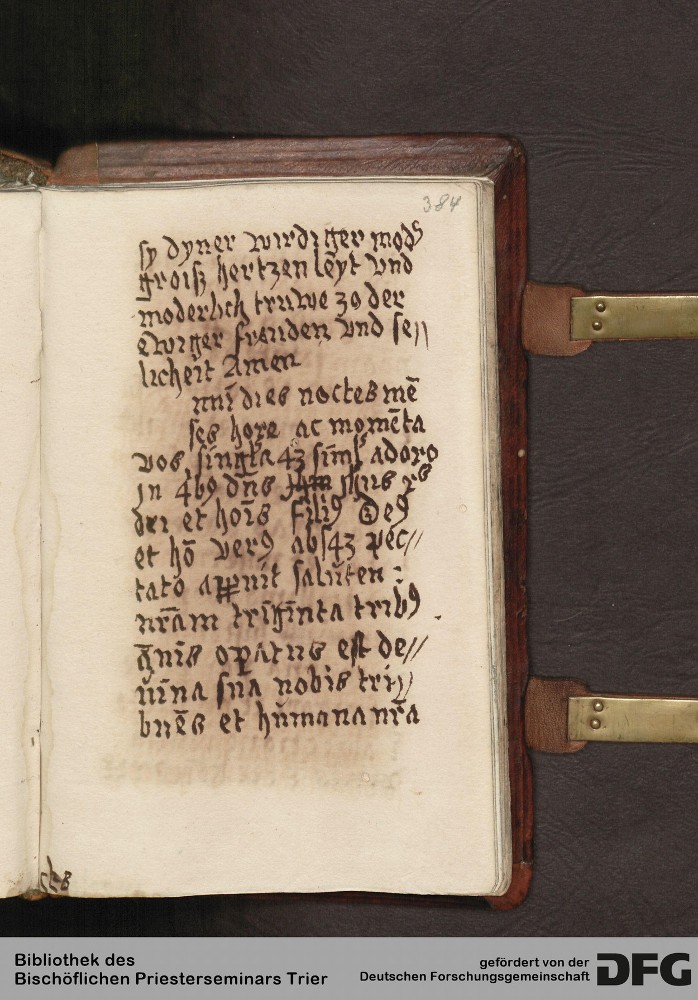 384
sy dyner wirdiger mod᷒
groiß hertzen leyt vnd
moderlich truwe zo der
ewiger freuden vnd se//
licheit Amen
mnī dies noctes mē
ses hore ac momēta
vos singła simł adoro
in dn̄s
dei et hoīs filiꝰ deꝰ
et hō verꝰ absꝗ pec//
tato apꝑuit saluten :
nr̄am triginta tribꝰ
ānis oꝑatus est de//
uina sua nobis tri//
bnēs et humana nr̄a
Bibliothek des
Bischöflichen Priesterseminars Trier
gefördert von der
Deutschen Forschungsgemeinschaft
DFG